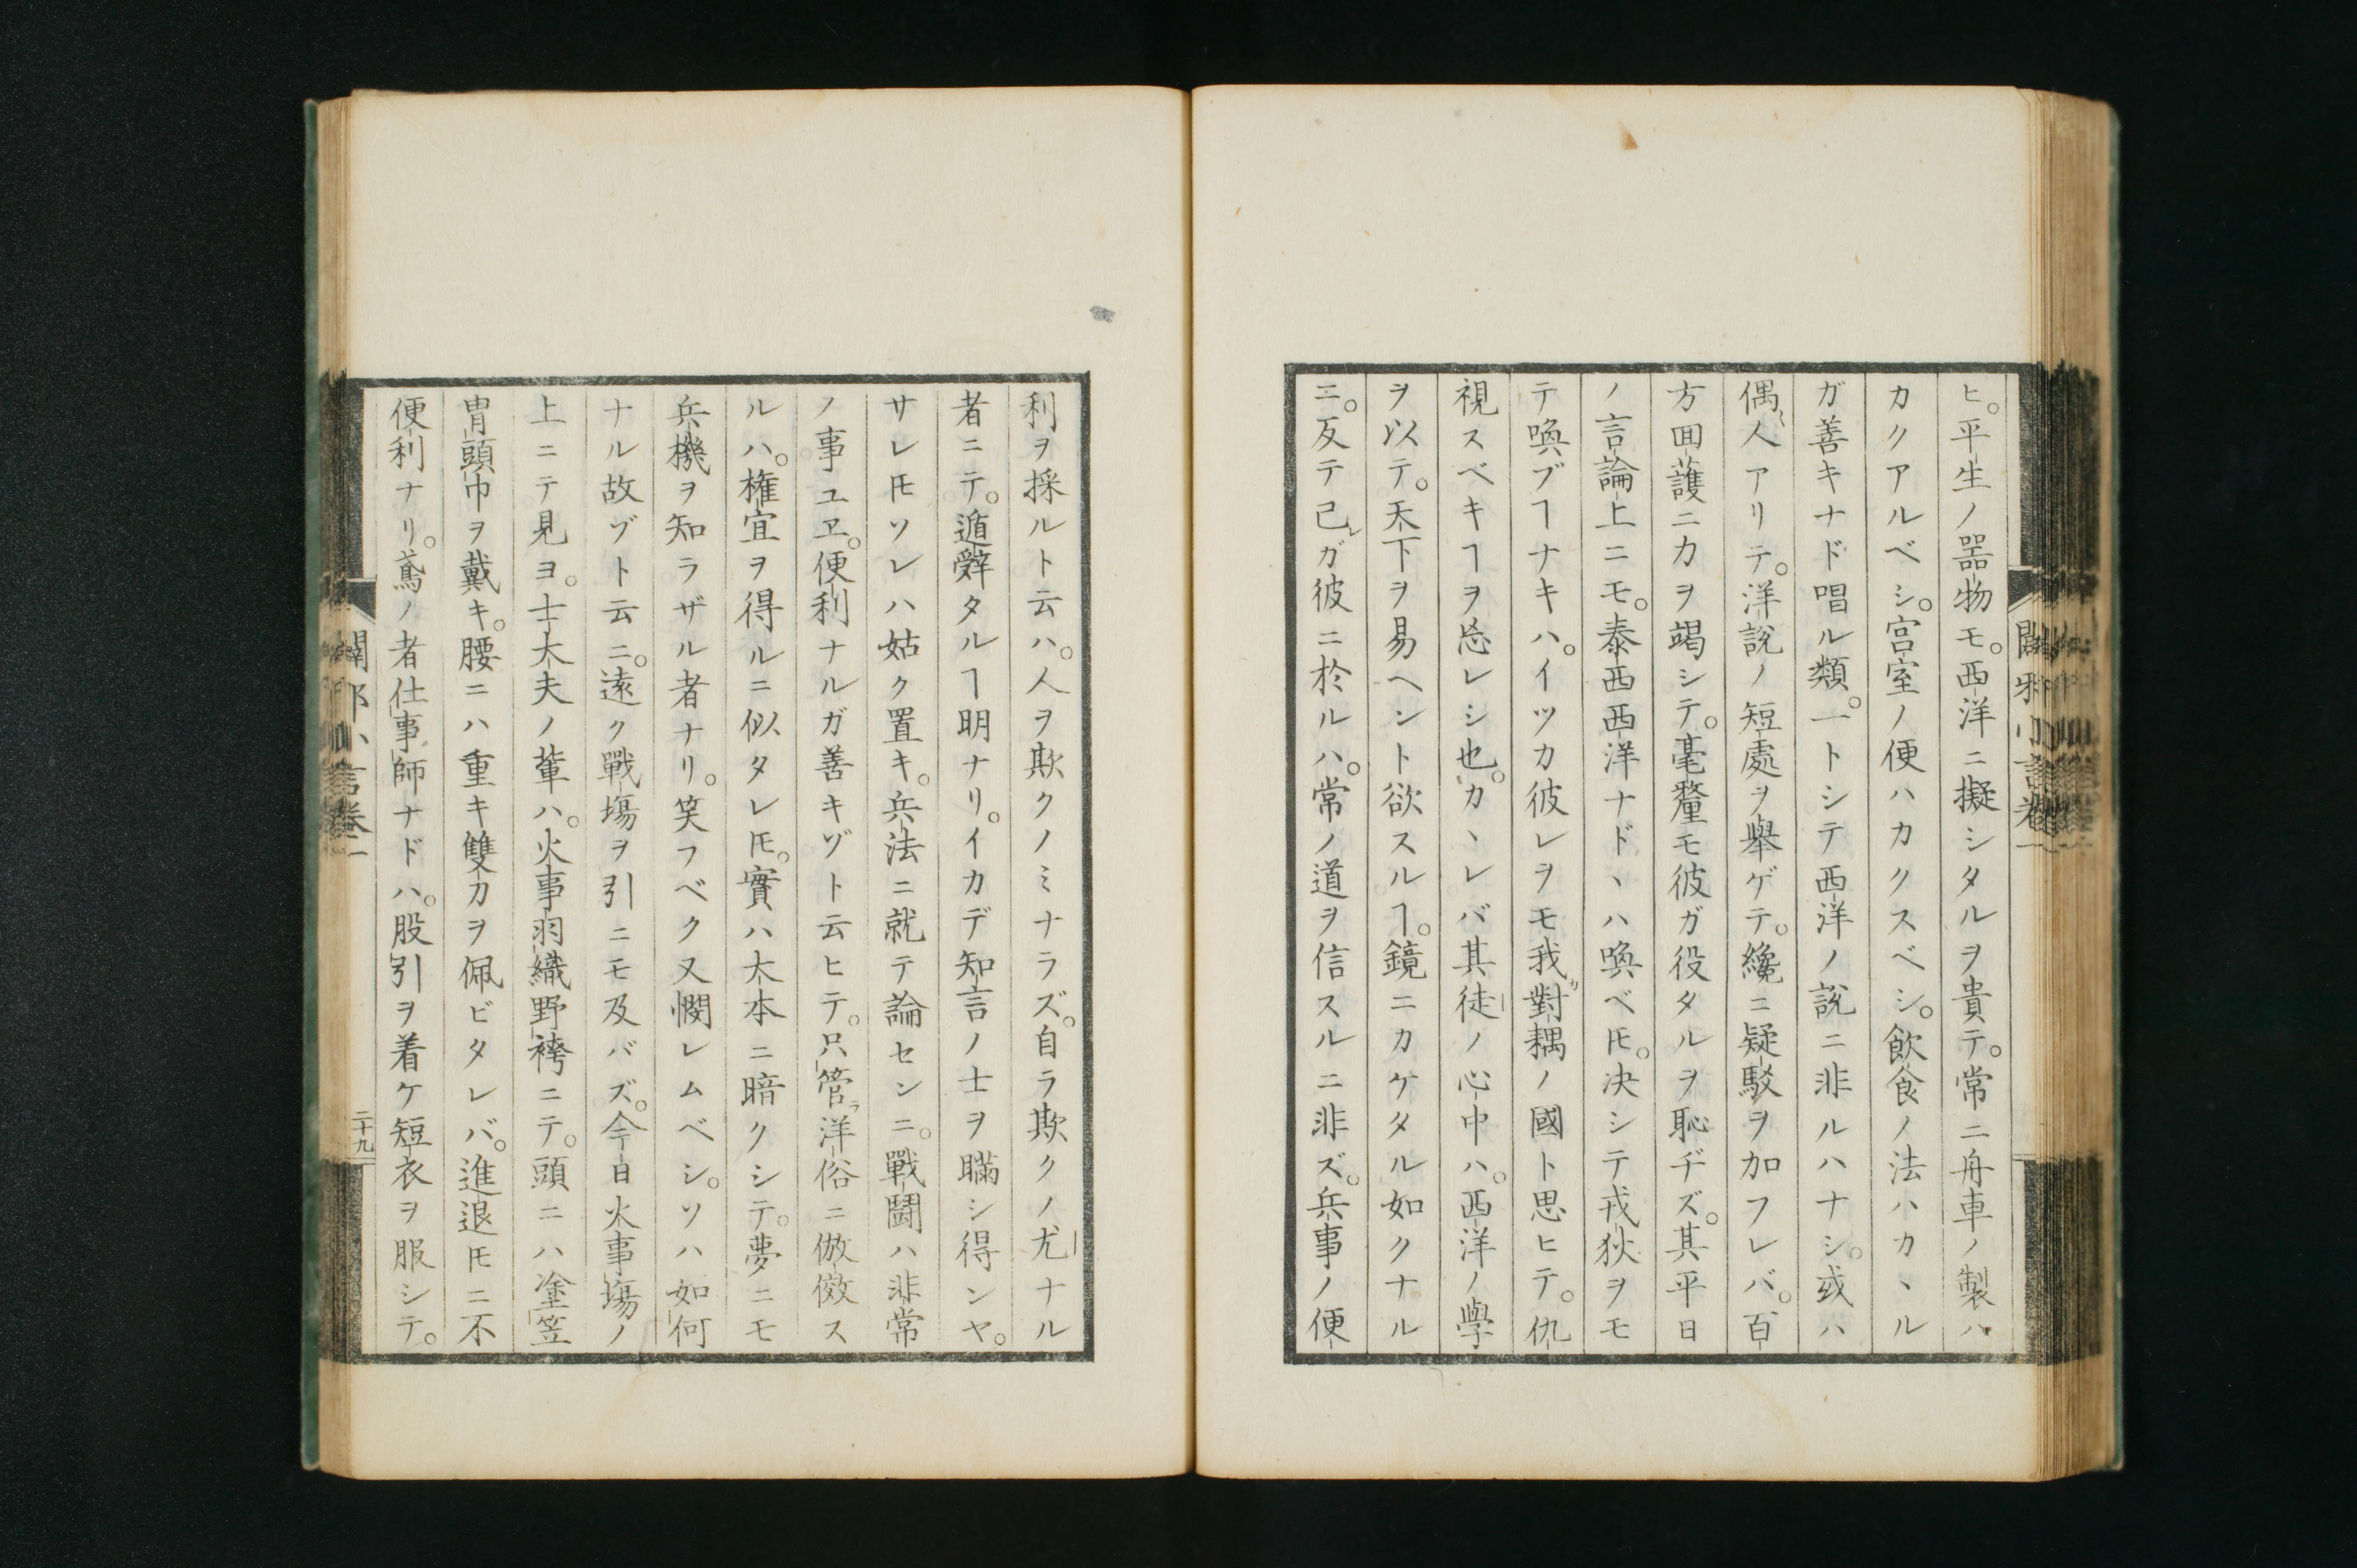 ヒ。平生ノ噐物モ。西洋ニ擬シタルヲ貴テ。常ニ舟車ノ製ハ
カクアルベシ。宮室ノ便ハカクスベシ。飲食ノ法ハカヽル
ガ善キナド唱ル類。一トシテ西洋ノ說ニ非ルハナシ。或ハ
偶〻人アリテ。洋說ノ短處ヲ擧ゲテ。纔ニ疑駁ヲ加フレバ。百
方囬護ニ力ヲ竭シテ。毫釐モ彼ガ役タルヲ恥ヂズ。其平日
ノ言論上ニモ。泰西西洋ナドヽハ喚ベ𪜈。决シテ戎狄ヲモ
テ喚ブヿナキハ。イツカ彼レヲモ我ガ對耦ノ國ト思ヒテ。仇
視スベキヿヲ忘レシ也。カヽレバ其徒ノ心中ハ。西洋ノ學
ヲ以テ。天下ヲ易ヘント欲スルヿ。鏡ニカケタル如クナル
ニ。反テ己レガ彼ニ於ルハ。常ノ道ヲ信スルニ非ズ。兵事ノ便
利ヲ採ルト云ハ。人ヲ欺クノミナラズ。自ラ欺クノ尤ナル
者ニテ。遁辭タルヿ明ナリ。イカデ知言ノ士ヲ瞞シ得ンヤ。
サレ𪜈ソレハ姑ク置キ。兵法ニ就テ論センニ。戰鬪ハ非常
ノ事ユヱ。便利ナルガ善キゾト云ヒテ。只管ラ洋俗ニ倣傚ス
ルハ。權宜ヲ得ルニ似タレ𪜈。實ハ大本ニ暗クシテ。夢ニモ
兵機ヲ知ラザル者ナリ。笑フベク又憫レムベシ。ソハ如何
ナル故ゾト云ニ。遠ク戰塲ヲ引ニモ及バズ。今日火事塲ノ
上ニテ見ヨ。士大夫ノ輩ハ。火事羽織野袴ニテ。頭ニハ塗笠
冑頭巾ヲ戴キ。腰ニハ重キ雙刀ヲ佩ビタレバ。進退𪜈ニ不
便利ナリ。鳶ノ者仕事師ナドハ。股引ヲ着ケ短衣ヲ服シテ。
闢邪小言卷一
二十九